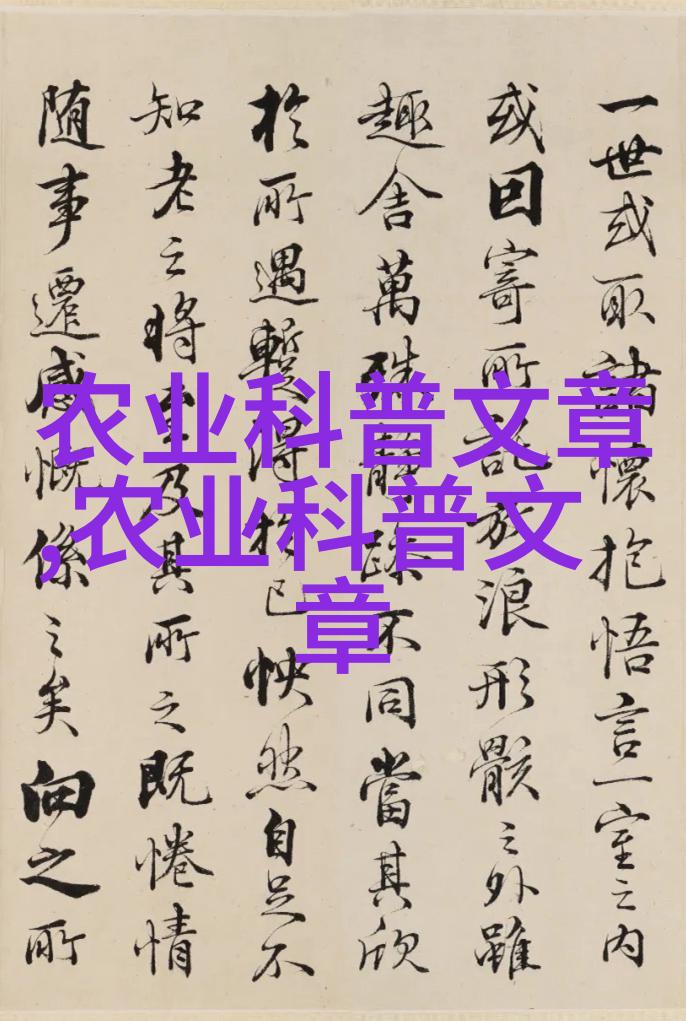 农业科普文章
,农业科普文
章
一世或取諸懷抱悟言一室之内
或因寄所託放浪形骸之外雖
趣舍萬殊静躁不同當其欣
於所遇暫得於己怏然自足不
知老之將至及其所之既惓情
随事遷感慨係之矣向之所